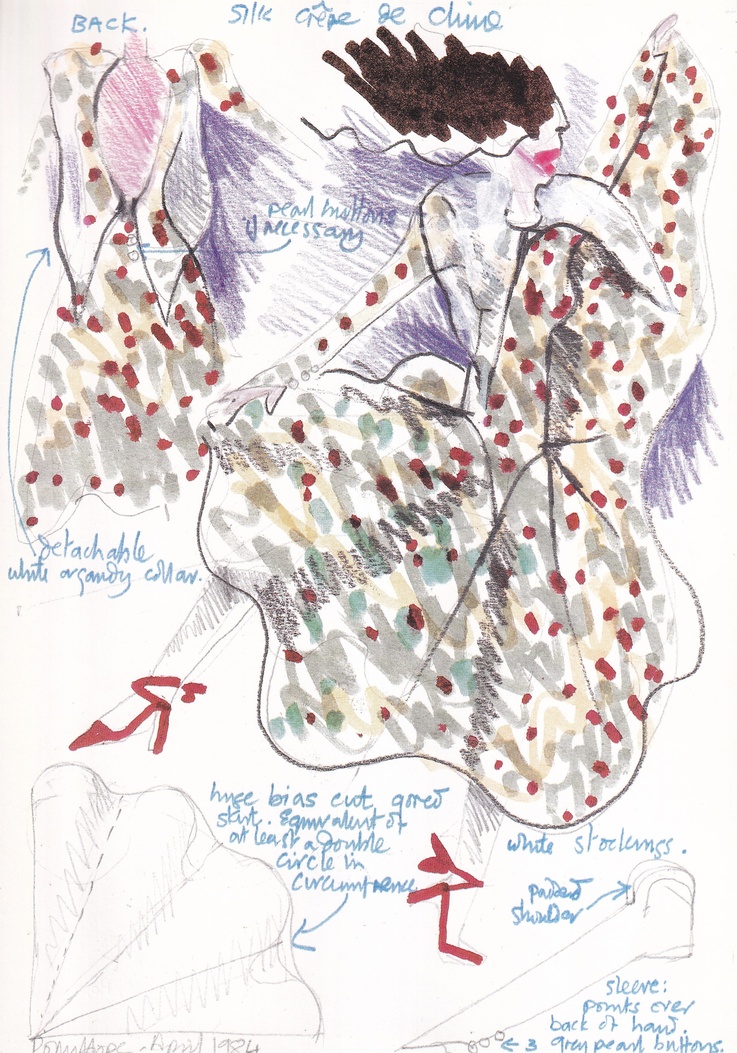 BACK.
silk crêpe de chine
pearl buttons
if necessary
detachable
white organdy collar.
huge bias cut gored
skirt. Equivalent of
at least a double
circle in
circumference
white stockings.
padded
shoulder
sleeve:
points over
back of hand.
3 grey pearl buttons.
April 1984